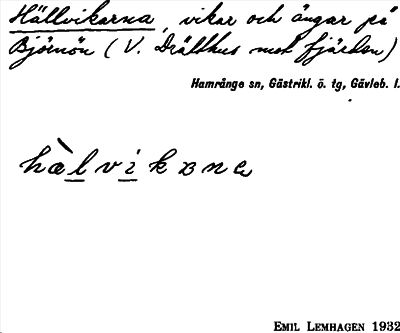 Hällvikarna, vikar och ängar på
Björnön (V. Drälthus mot fjärden)
Hamrånge sn, Gästrikl. ö. tg, Gävleb. l.
hæ̀lvikᴀnɐ
EMIL LEMHAGEN 1932